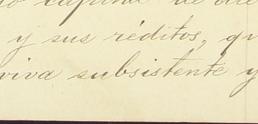 capital de
y sus réditos, qu
viva subsistente y